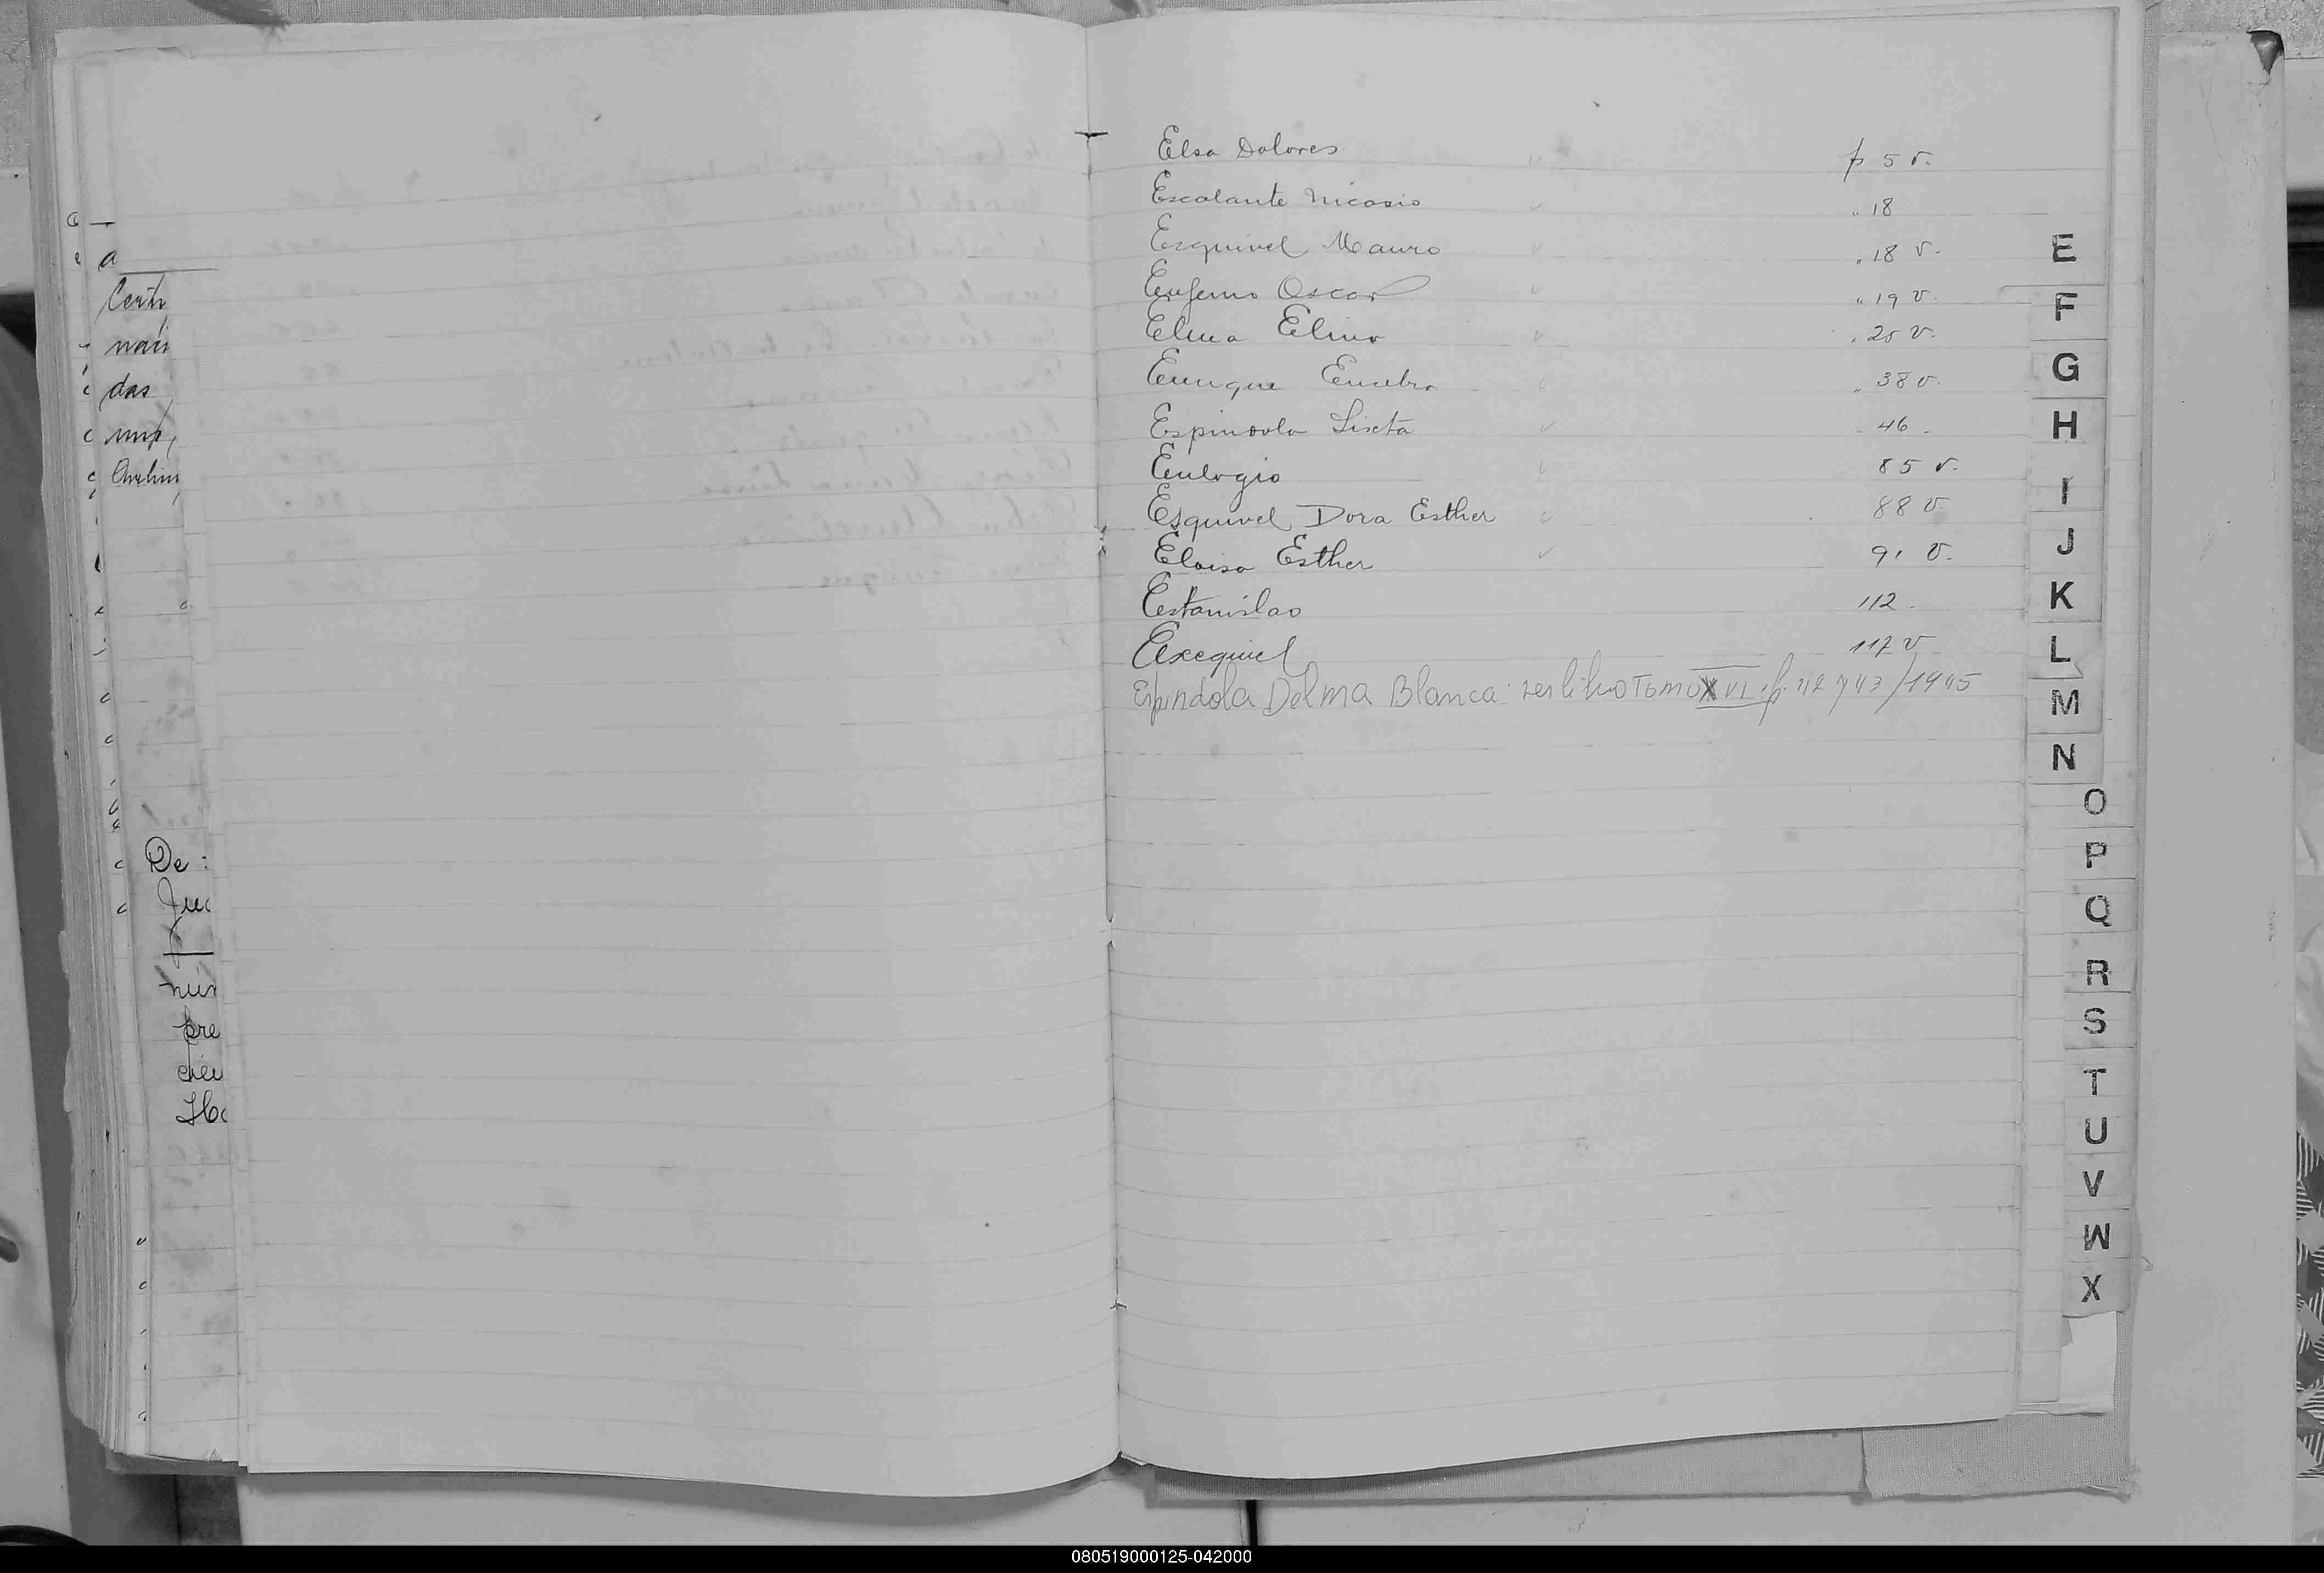 Elsa Dolores p 5 v.
Escalante Nicasio " 18
Esquivel Mauro " 18 v.
Eugenio Oscar " 19 v.
Elma Elino . 25 v.
Enrique Eusebio " 38 v.
Espindola Sixta 46
Eulogio 85 v.
Esquivel Dora Esther 88 v.
Eloisa Esther 91 v.
Estanislao 112
Exequiel 117 v
Espindola Delma Blanca ver libro Tomo XVI f. 42 y 43/1945
E
F
G
H
I
J
K
L
M
N
O
P
Q
R
S
T
U
V
W
X
a
das
De :
pre
080519000125-042000